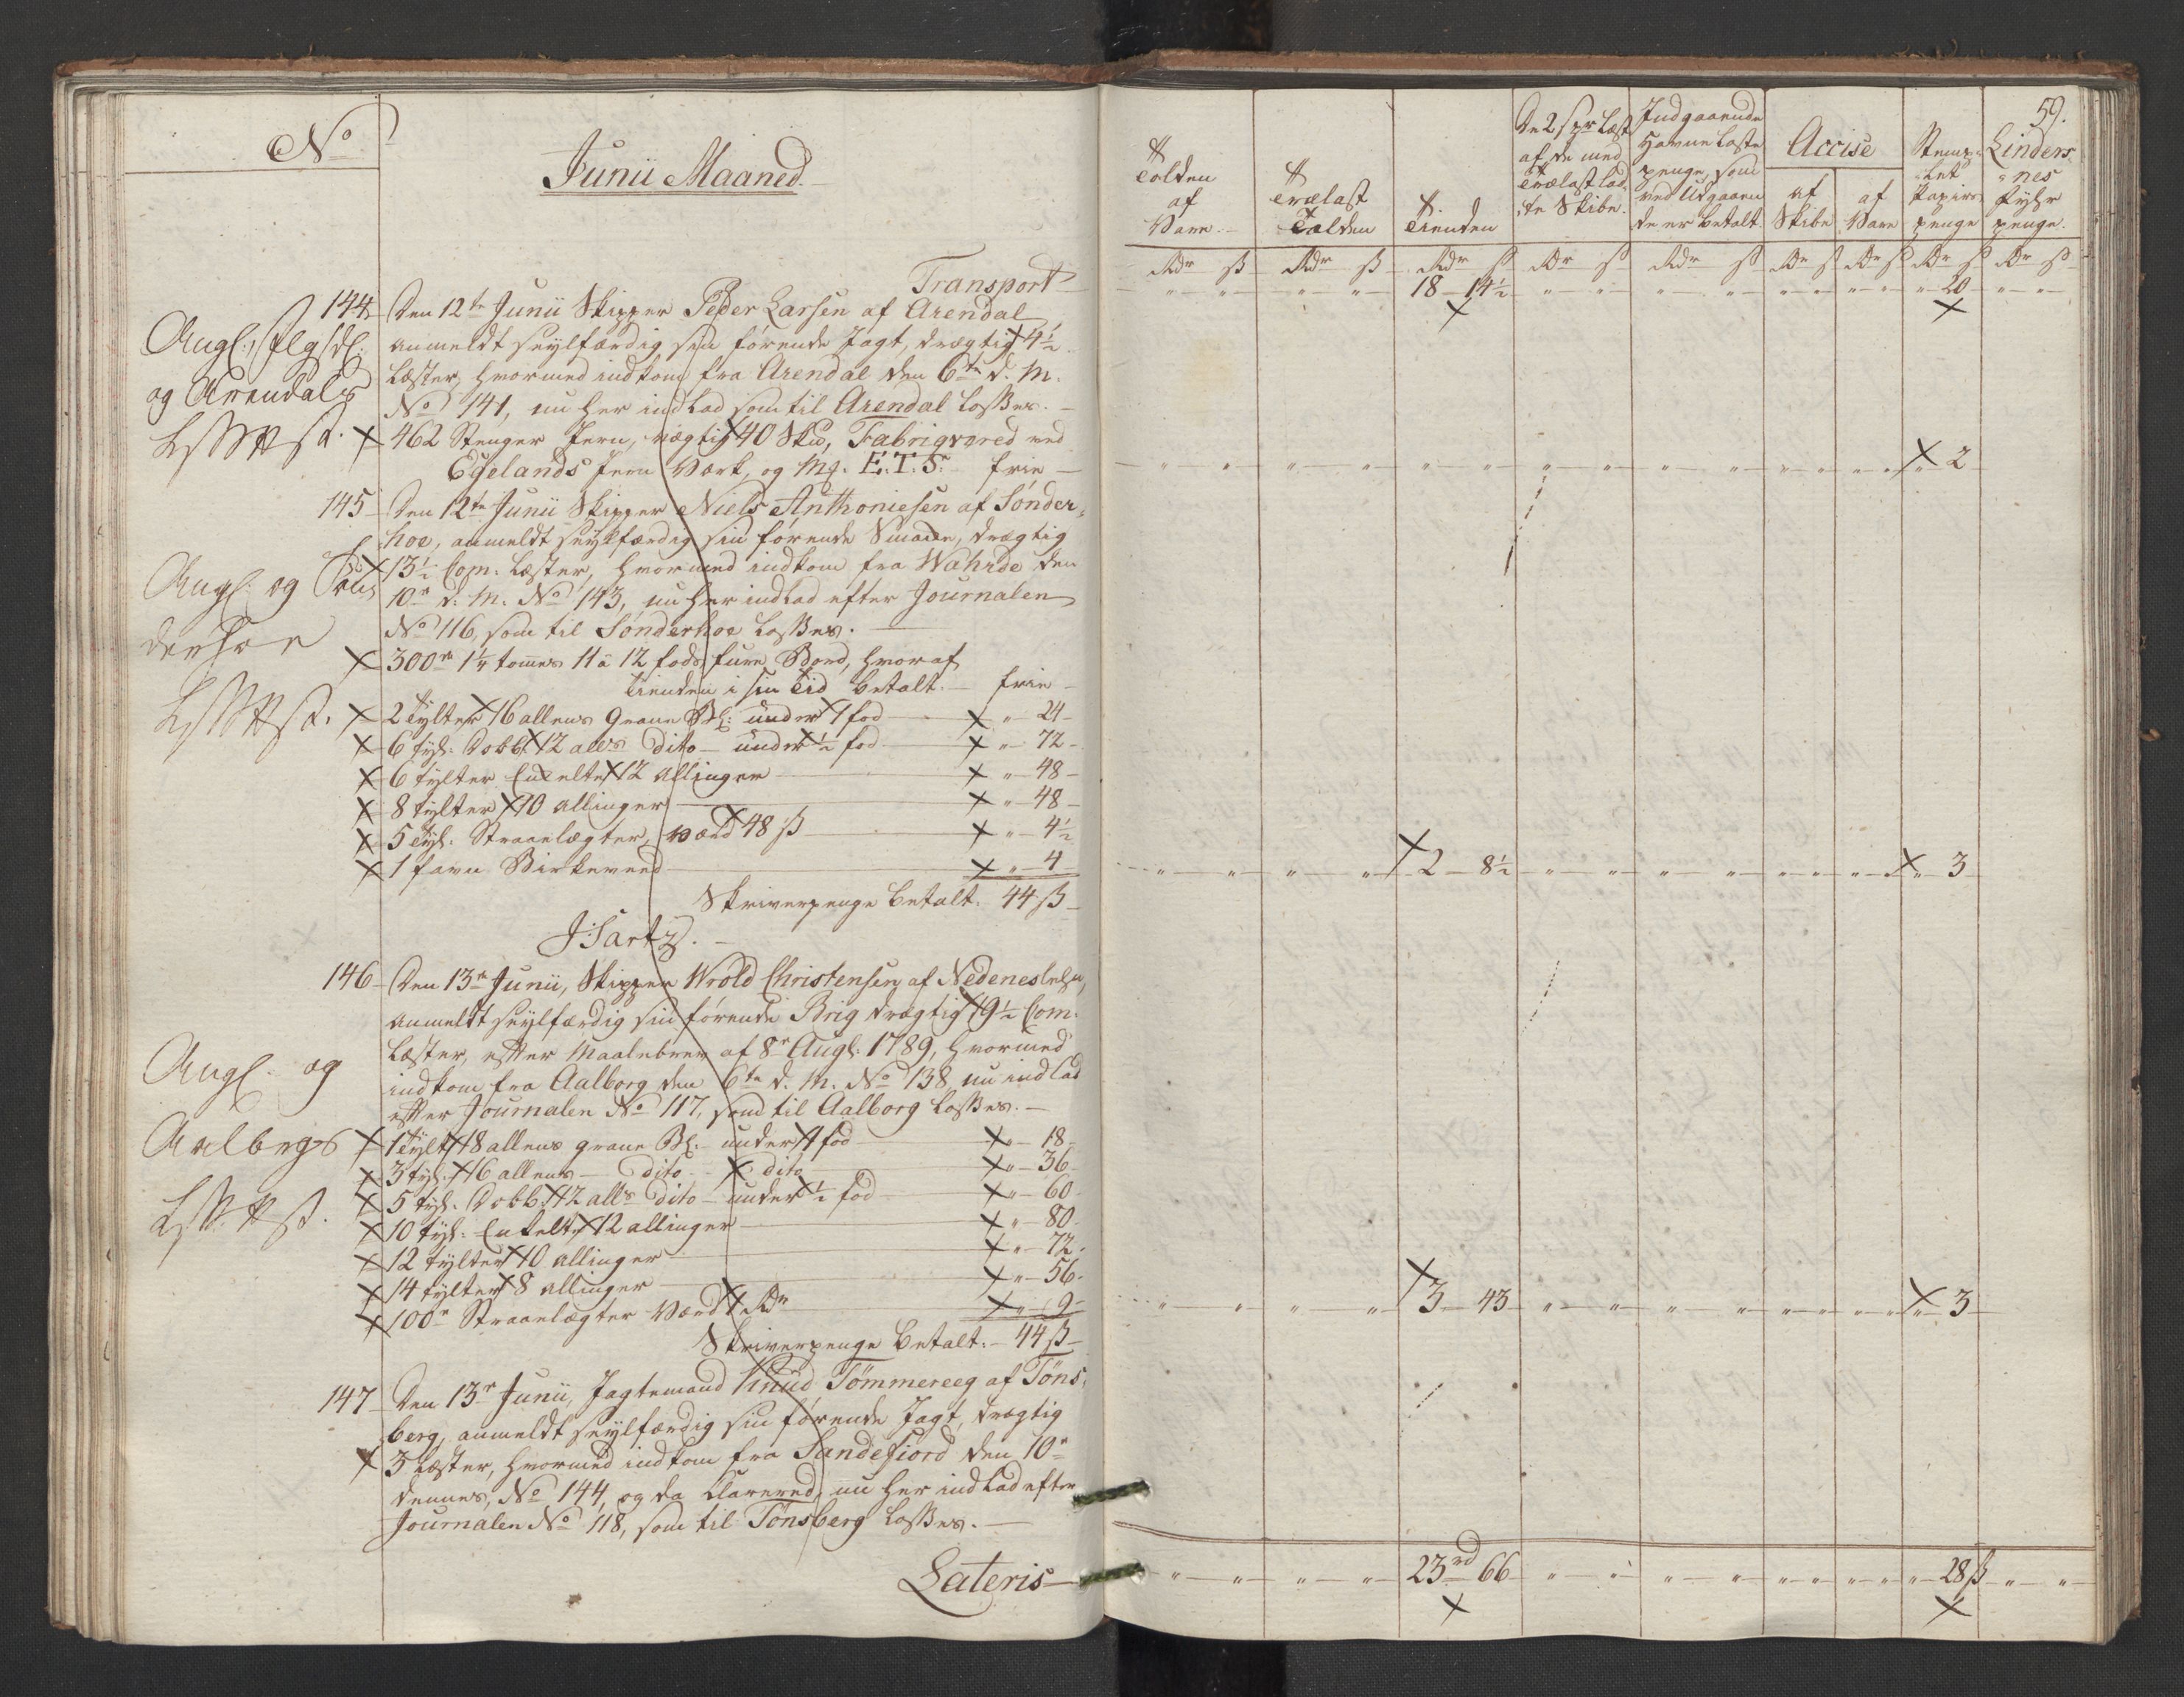 No
Junii Maaned.
Transport
144 Den 12te Junii Skipper Peder Larsen af Arendal
anmeldt seylfærdig sin førende Jagt, drægtig 4½
Læster, hvormed indkom fra Arendal den 6te d. M.
No 141, nu her indlad som til Arendal losses.
462 Stenger Jern, vægtig 40 Sk℔, Fabrigvered ved
Egelands Jern Værk, og Mq. E.T.S. frie
og Arendals
145 Den 12te Junii Skipper Niels Anthoniesen af Sønder-
hoe, anmeldt seylfærdig sin førende Smakke, drægtig
13½ Com. Læster, hvormed indkom fra Wahrde den
10de d. M. No 143, nu her indlad efter Journalen
No 116, som til Sønderhoe losses.
300de 1¼ tommes 11 à 12 fods furu Bord, hvoraf
Tienden i sin Tid betalt. frie
2 Tylter 16 allens Grane Bl: under 1 fod " 24
6 tyl: Dobb. 12 alns dito under ½ fod " 72
6 tylter Enkelte 12 allinger " 48
8 tylter 10 allinger " 48
5 tyl: Straaelægter, værd 48 ß " 4½
1 favn Birkeveed " 4
Skriverpenge betalt. 44 ß
146 Den 13de Junii, Skipper Wrold Christensen af Nedeneslehn,
anmeldt seylfærdig sin førende Brig drægtig 19½ Com.
Læster, efter Maalebrev af 8de Aug: 1789, hvormed
indkom fra Aalborg den 6te d. M. No 138, nu indlad
efter Journalen No 117, som til Aalborg losses.
og
Aalborgs
1 Tylt 18 allens grane Bl: under 1 fod " 18
3 tyl: 16 allens dito dito " 36
5 tyl: Dobb. 12 alls dito under ½ fod " 60
10 tyl: Enkelte 12 allinger " 80
12 tylter 10 allinger " 72
14 tylter 8 allinger " 56
100de Straaelægter værd 1 Rdr " 9
Skriverpenge betalt. 44 ß
147 Den 13de Junii, Jagtemand Knud Tömmereeg af Töns-
berg, anmeldt seylfærdig sin førende Jagt, drægtig
3 Læster, hvormed indkom fra Sandefiord den 10de
dennes, No 144, og da Clarered, nu her indlad efter
Journalen No 118, som til Tönsberg losses.
Lateris
59.
Tolden af Vare
Trælast Tolden
Tienden
De 2 spr Læst af de med Trælast ladte Skibe
Indgaaende Havne Laste penge, som ved Udgaaende er betalt
Accise
af Skibe
af Vare
Stemplet Papiirs penge
Lindersnes Fyhr penge.
Rdr ß Rdr ß Rdr ß Rdr ß Rdr ß Rdr ß Rdr ß Rdr ß Rdr ß
18 14½ 20
2
2 8½ 3
3 43 3
23rd 66 28 ß